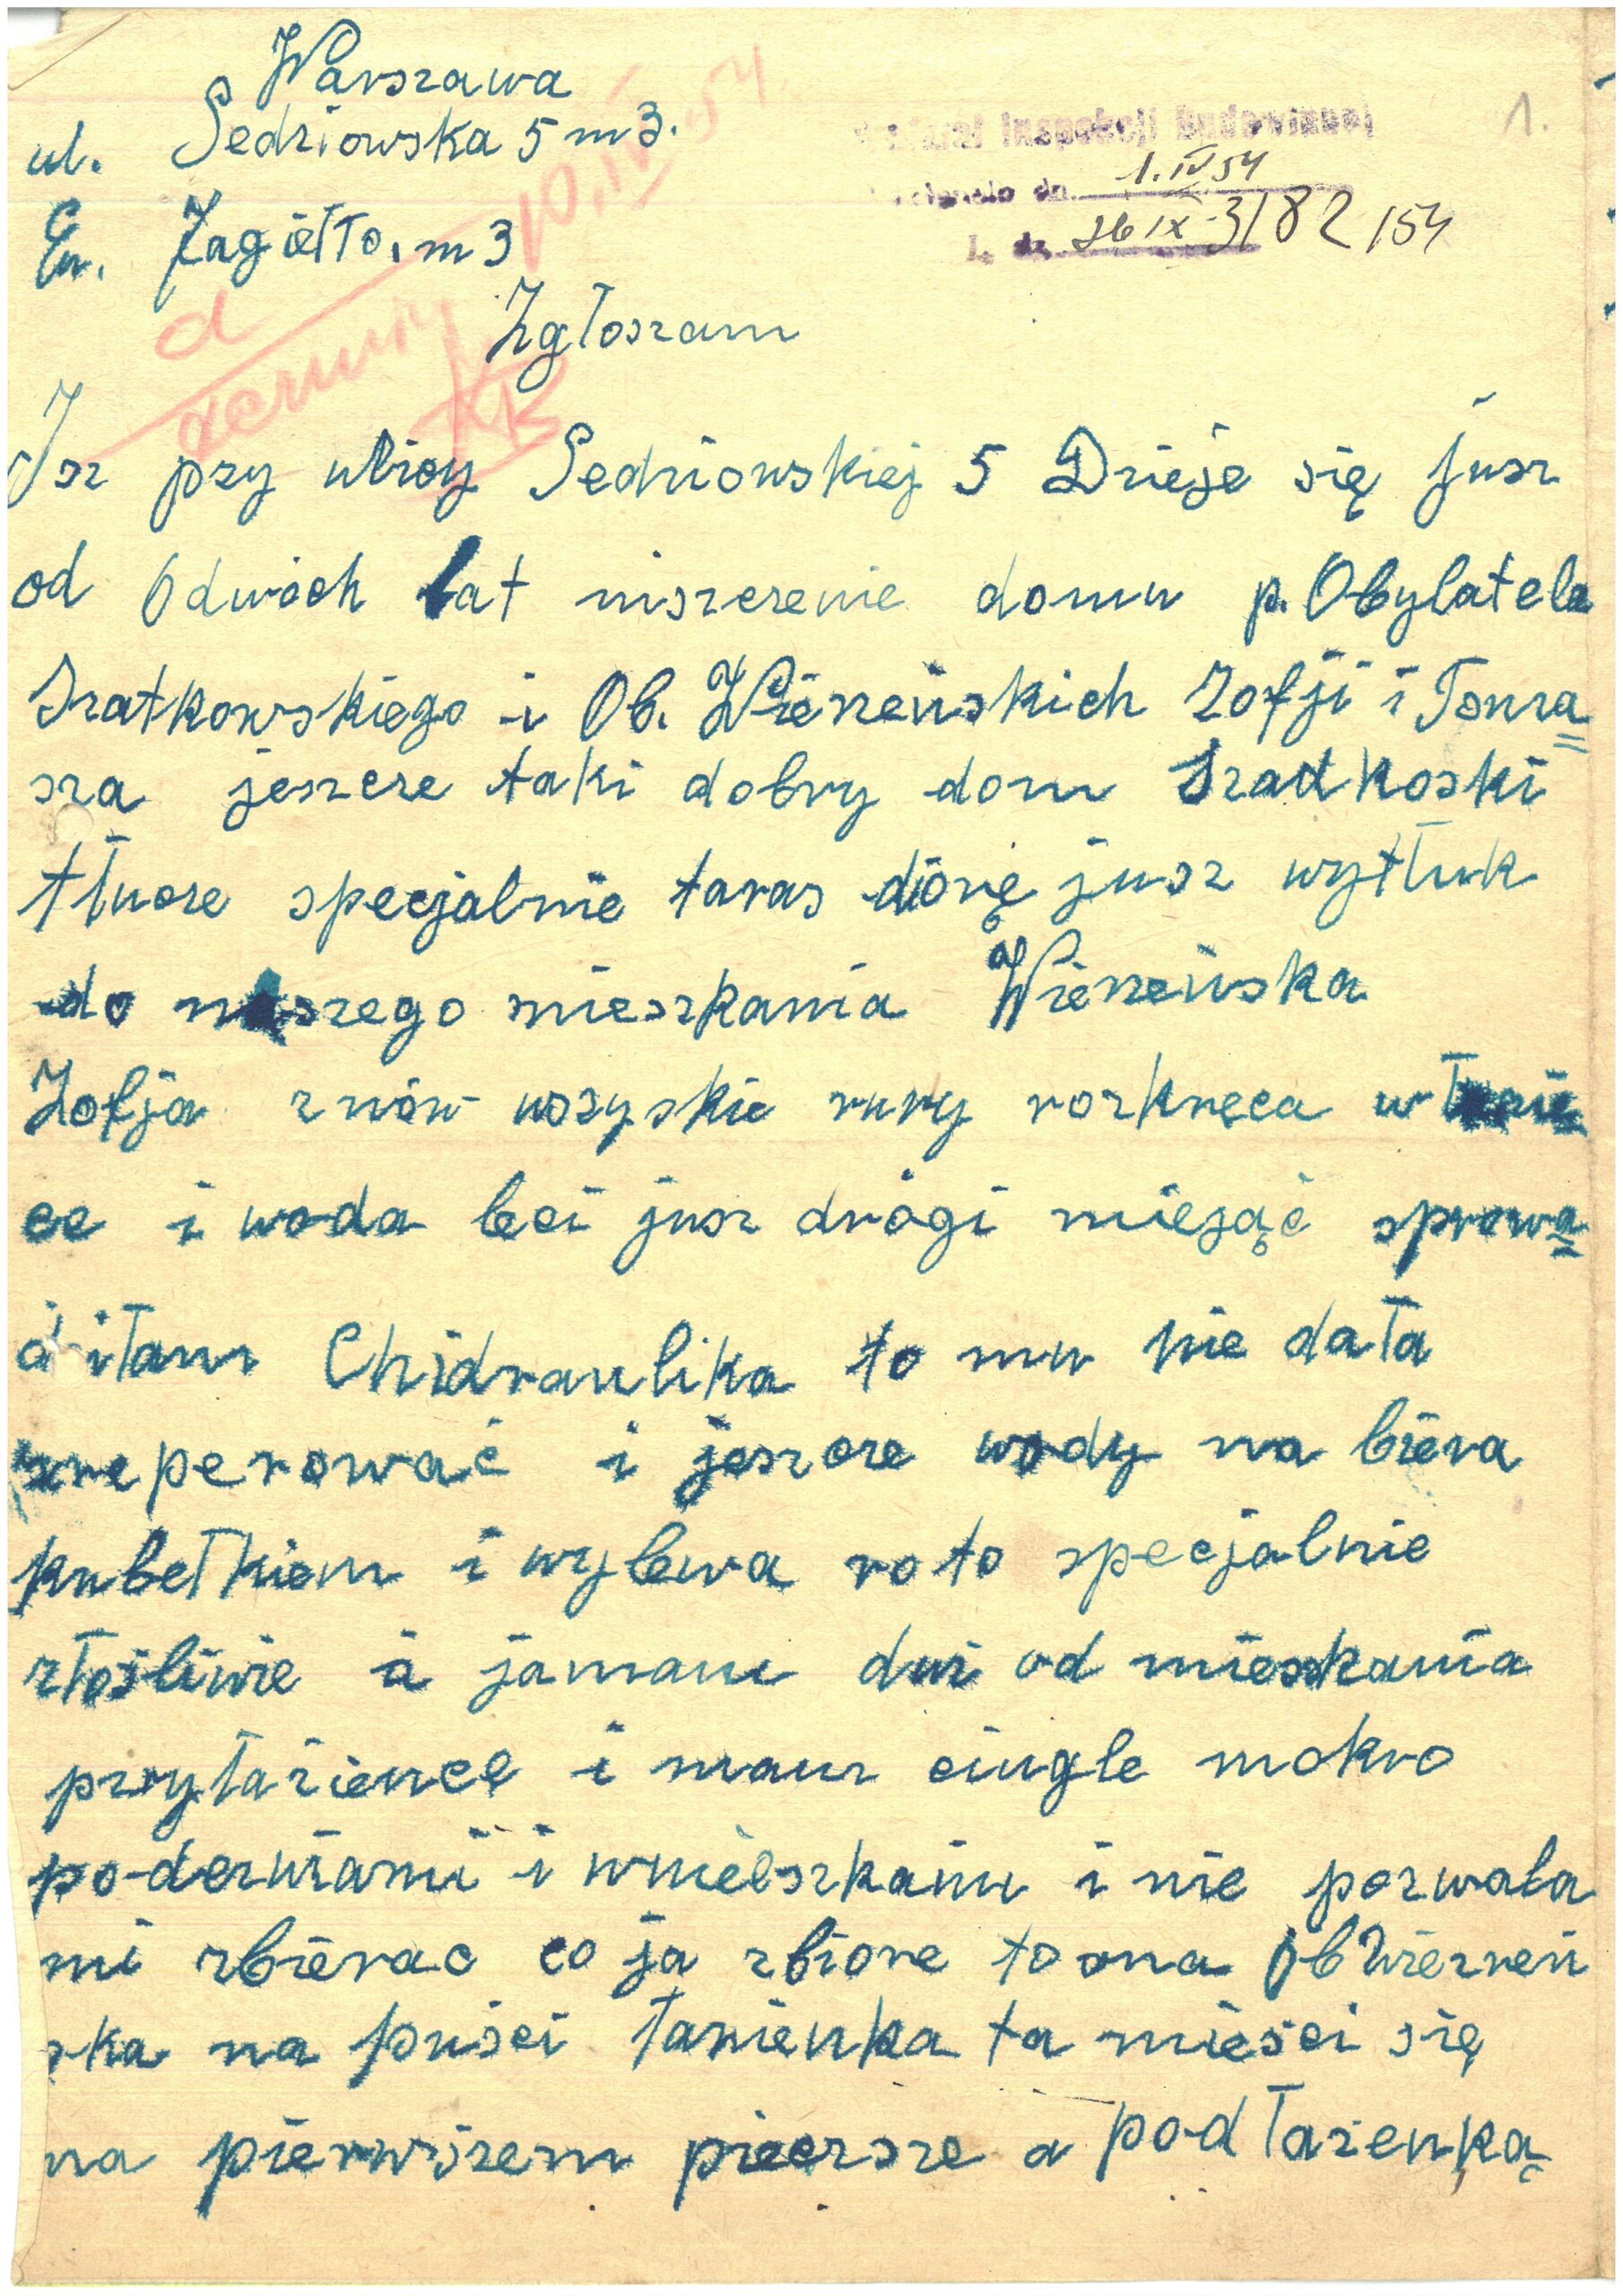 Warszawa
ul. Sedziowska 5 m 3.
Jagiełło. m 3
1.
1. IV 54
L. dz. 26 IX 3182/54
10. IV 54
Zgłoszam
Isz pszy ulicy Sedziowskiej 5 Dzieje się jusz
od Odwóch lat niszczenie domu p. Obylatela
Szatkowskiego i Ob. Wiezeńskich Zofji i Toma=
sza jeszcze taki dobry dom Szadkoski
tłucze specjalnie taras dziórę jusz wytłuk
do naszego mieszkania a Wiezeńska
Zofja znów wszyskie rury rozkręca w
ce i woda leci jusz drógi miejąć sprowa=
dziłam Chidraulika to mu nie dała
zreperować i jeszcze wody na biera
kubełkiem i wylewa roto specjalnie
złośliwie a jamam dwi od mieszkania
pszytazience i mam ciugle mokro
podezwiami i wmieszkaniu i nie pozwala
mi zbierac co ja zbiore to ona Ob Wiezień
ska na puści łazienka ta mieści się
na pierwszem pieersze a pod łazienką